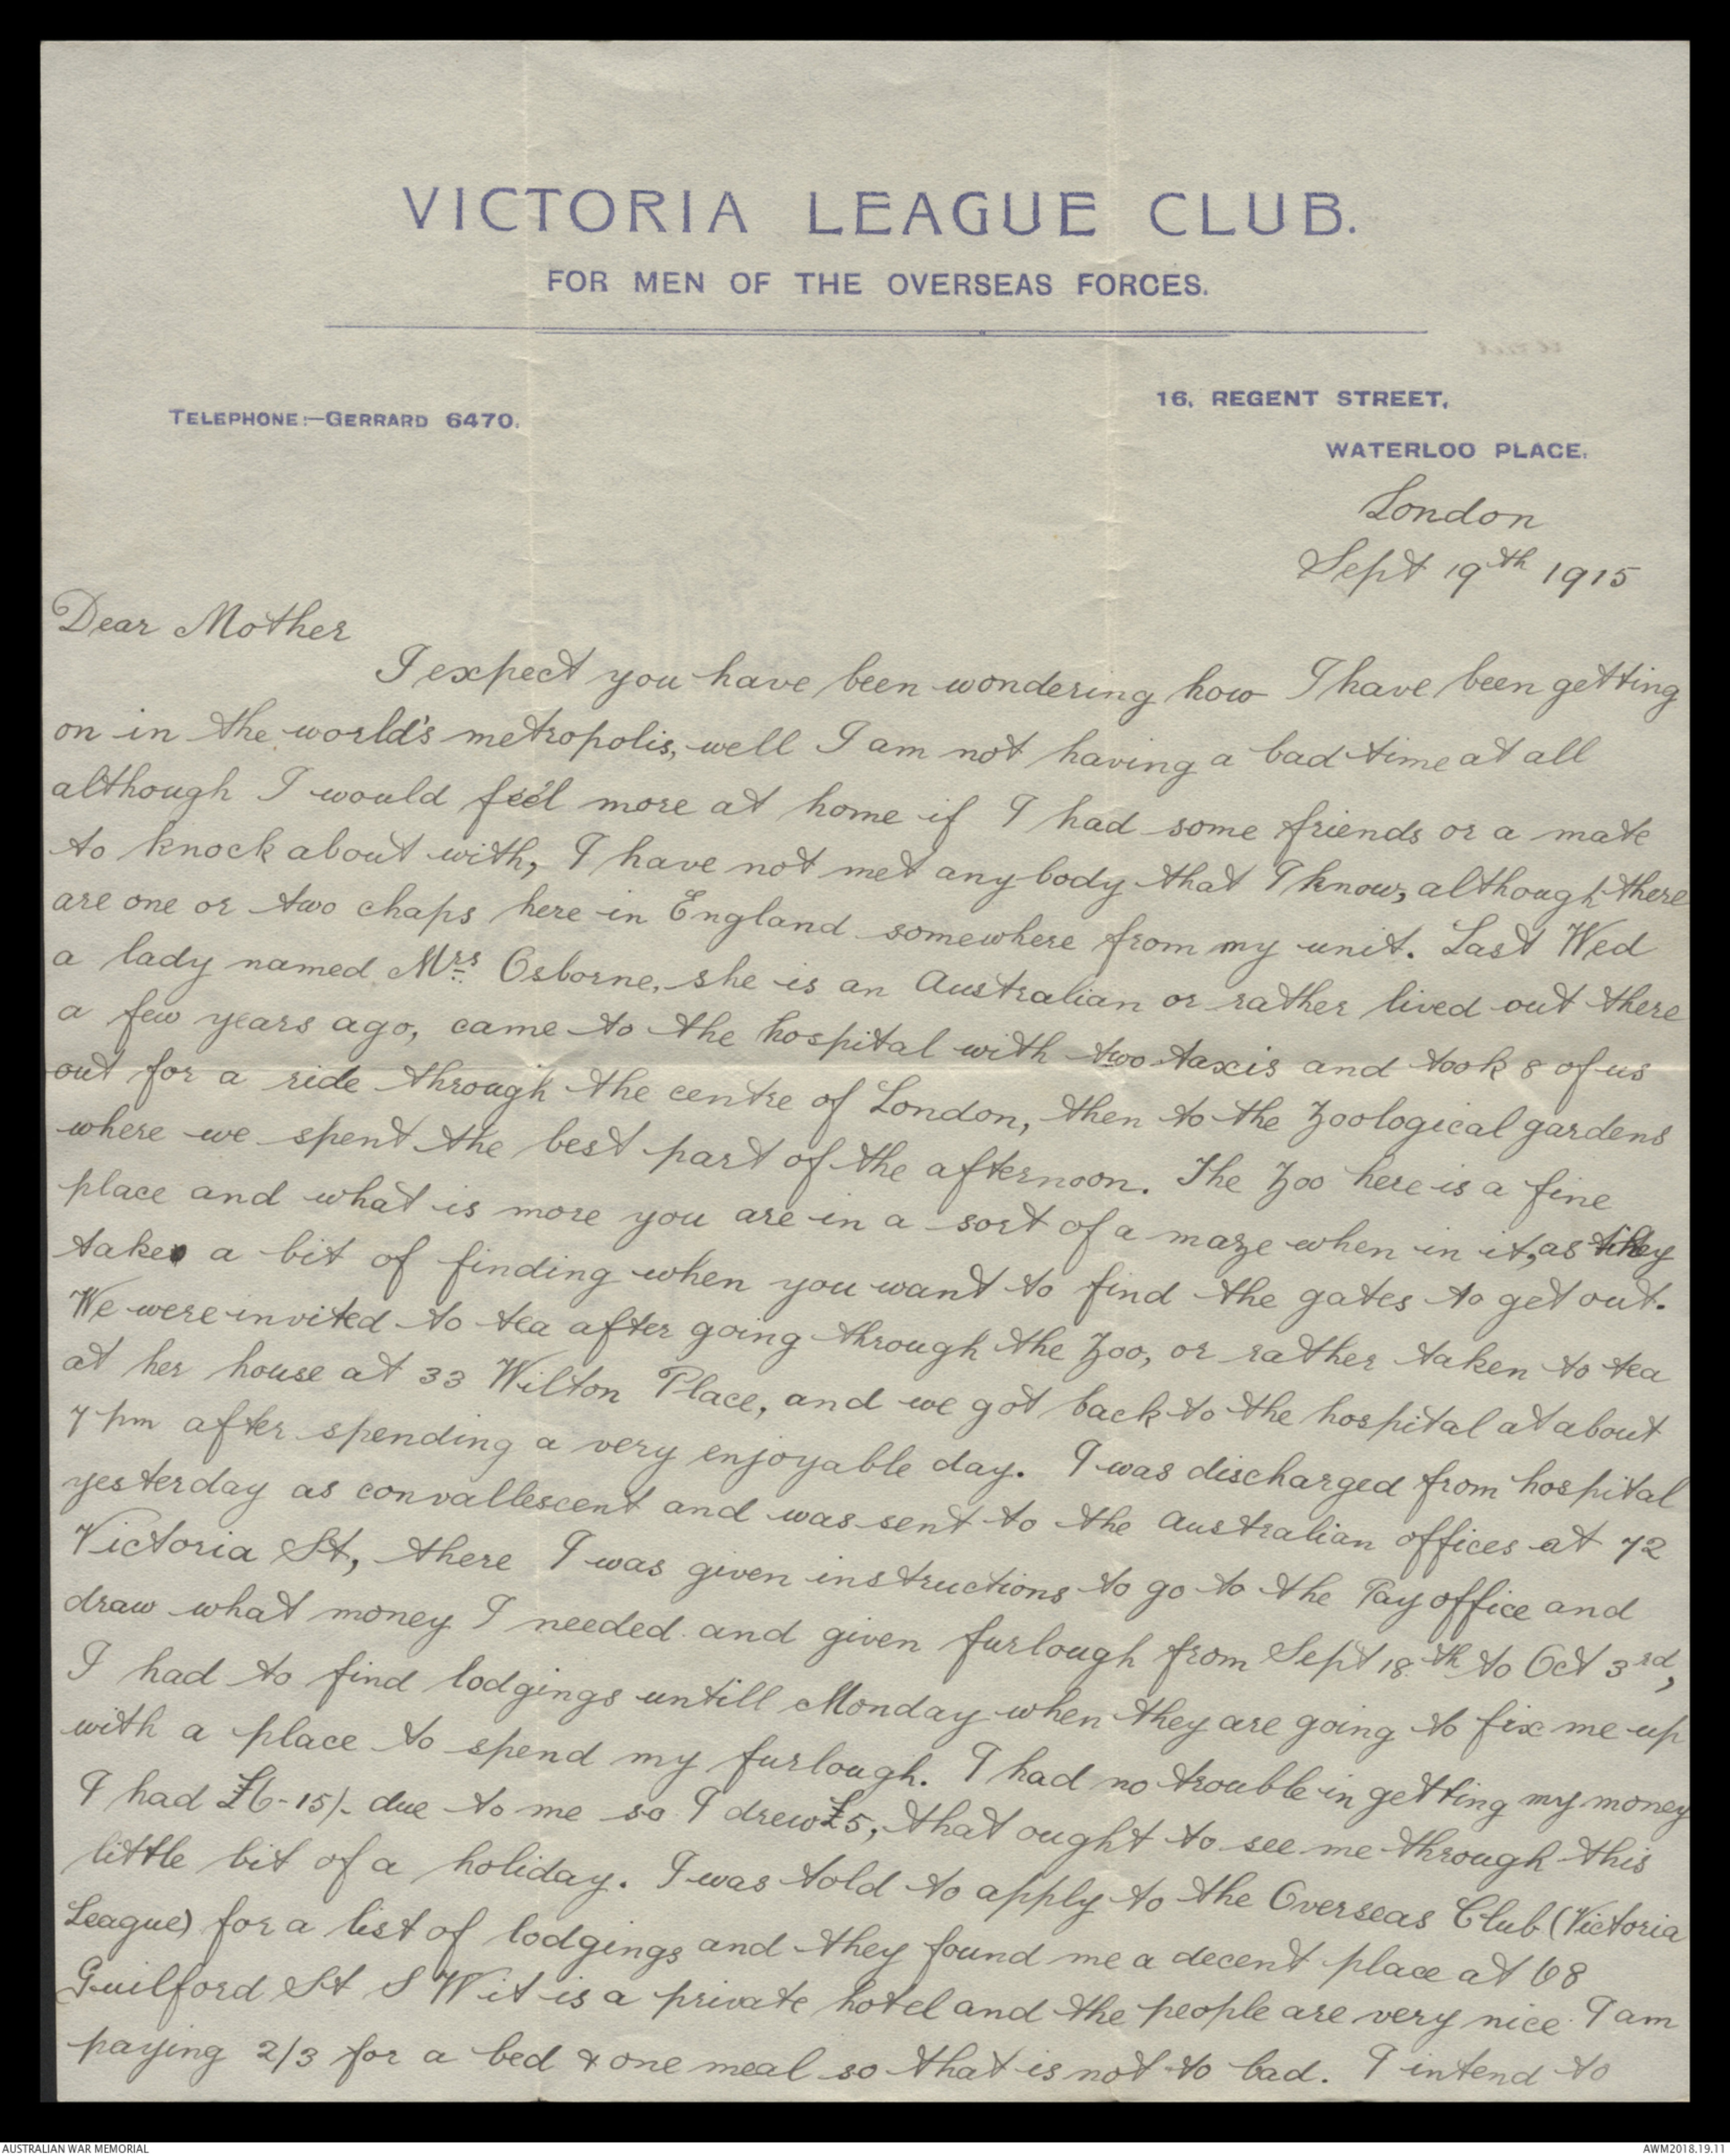 VICTORIA LEAGUE CLUB.
FOR MEN OF THE OVERSEAS FORCES.
TELEPHONE:—GERRARD 6470.
16, REGENT STREET,
WATERLOO PLACE.
London
Sept 19th 1915
Dear Mother
I expect you have been wondering how I have been getting
on in the world's metropolis, well I am not having a bad time at all
although I would feel more at home if I had some friends or a mate
to knock about with, I have not met anybody that I know, although there
are one or two chaps here in England somewhere from my unit. Last Wed
a lady named Mrs Osborne, she is an Australian or rather lived out there
a few years ago, came to the hospital with two taxis and took 8 of us
out for a ride through the centre of London, then to the Zoological gardens
where we spent the best part of the afternoon. The Zoo here is a fine
place and what is more you are in a sort of a maze when in it, as they
take a bit of finding when you want to find the gates to get out.
We were invited to tea after going through the Zoo, or rather taken to tea
at her house at 33 Wilton Place, and we got back to the hospital at about
7 pm after spending a very enjoyable day. I was discharged from hospital
yesterday as convallescent and was sent to the Australian offices at 72
Victoria St, there I was given instructions to go to the Pay office and
draw what money I needed and given furlough from Sept 18th to Oct 3rd,
I had to find lodgings untill Monday when they are going to fix me up
with a place to spend my furlough. I had no trouble in getting my money
I had £6-15/- due to me so I drew £5, that ought to see me through this
little bit of a holiday. I was told to apply to the Overseas Club (Victoria
League) for a list of lodgings and they found me a decent place at 68
Guilford St S W it is a private hotel and the people are very nice I am
paying 2/3 for a bed & one meal so that is not to bad. I intend to
AUSTRALIAN WAR MEMORIAL
AWM2018.19.11